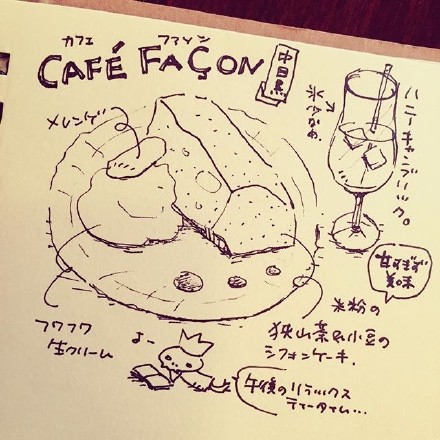 カフェ ファソン
CAFÉ FAÇON
中目黒
メレンゲ
氷少なめ。
ハニーキャンブリック。
甘すぎず
美味
米粉の
狭山茶&小豆の
シフォンケーキ.
フワフワ
生クリーム
よー
午後のリラックス
ティータイム…